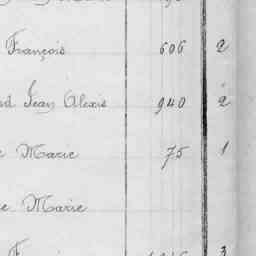 François 606 2
Jean Alexis 940 2
Marie 75 1
Marie
3